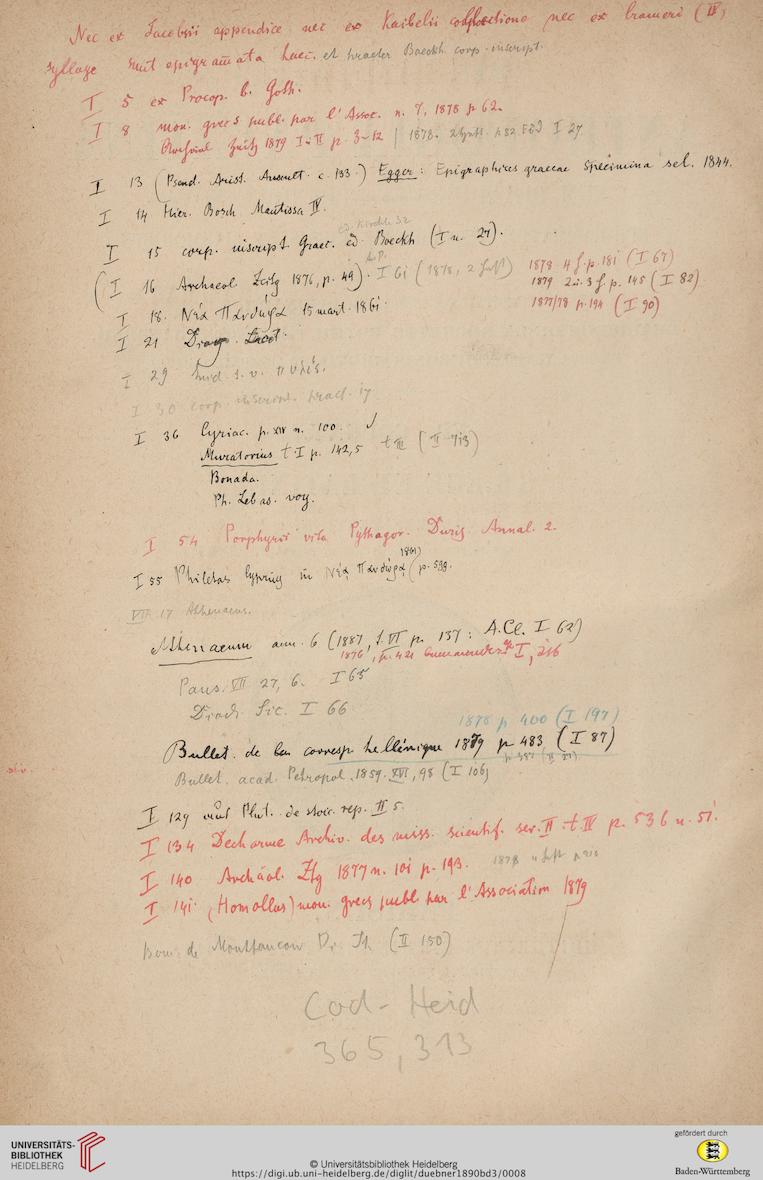 Nec ex Jacobsii appendice nec ex Kaibelii collectione nec ex Crameri (IV)
syllage sunt epigramata haec. et praeter Boeckh. corp. inscript.
I 5 ex Procop. b. Goth.
I 8 mon. grecs publ. par l'Assoc. n. 7, 1878 p 62.
Archäol Zeitg 1879 I u. II p. 3-12 | 1878. I 27
I 13 (Pseud. Arist. Auscult. c. 133.) Egger: Epigraphices graecae specimina sel. 1844.
I 14 Hier. Bosch Mantissa IV.
ed. Kirchh. 32
I 15 corp. inscript Graec. ed. Boeckh (I n. 29).
(I 16 Archaeol Zeitg 1876, p. 49). I 61 (1878, 2 Heft) 1878 4 f. p. 181 (I 67)
1879 2 u. 3 f. p. 145 (I 82)
I 18. Νέα Πανδώρα 15 mart. 1861. 1877/78 p. 194 (I 90)
I 21 Diog. Laert.
I 29 Suid. s. v.
I 30 corp. inscript. graec. 17
I 36 Cyriac. p. XIV n. 100.
Muratorius t. I p. 142,5 t III (II 713)
Bonada.
Ph. Lebas. voy.
I 54 Porphyrii vita Pythagor. Annal. 2.
I 55 Philetas in Νέα Πανδώρα (1861) p. 599.
VII 17 Athenaeus.
Athenaeum ann. 6 (1887, f. VI p. 137: A.Cl. I 62)
1876, p. 421 I, 216
Paus. VII 27, 6. I 65
Diod. Sic. I 66
1878 p 400 (I 197)
Bullet. de la corresp. hellénique 1879 p 483 (I 87)
Bullet. acad. Petropol. 1859. XVI, 98 (I 106)
I 129 Plut. de stoic. rep. II 5.
I 134 Decharme Archiv. des miss. scientif. ser. II. t. IV p. 536 n. 51.
I 140 Archäol. Ztg 1877 n. 101 p. 193. 1878 4 Heft
I 141 (Homollus) mon. grecs publ. par l'Association 1879
de Montfaucon D. It. (II 150)
Cod-Heid
365,313
UNIVERSITÄTS-
BIBLIOTHEK
HEIDELBERG
© Universitätsbibliothek Heidelberg
https://digi.ub.uni-heidelberg.de/diglit/duebner1890bd3/0008
gefördert durch
Baden-Württemberg